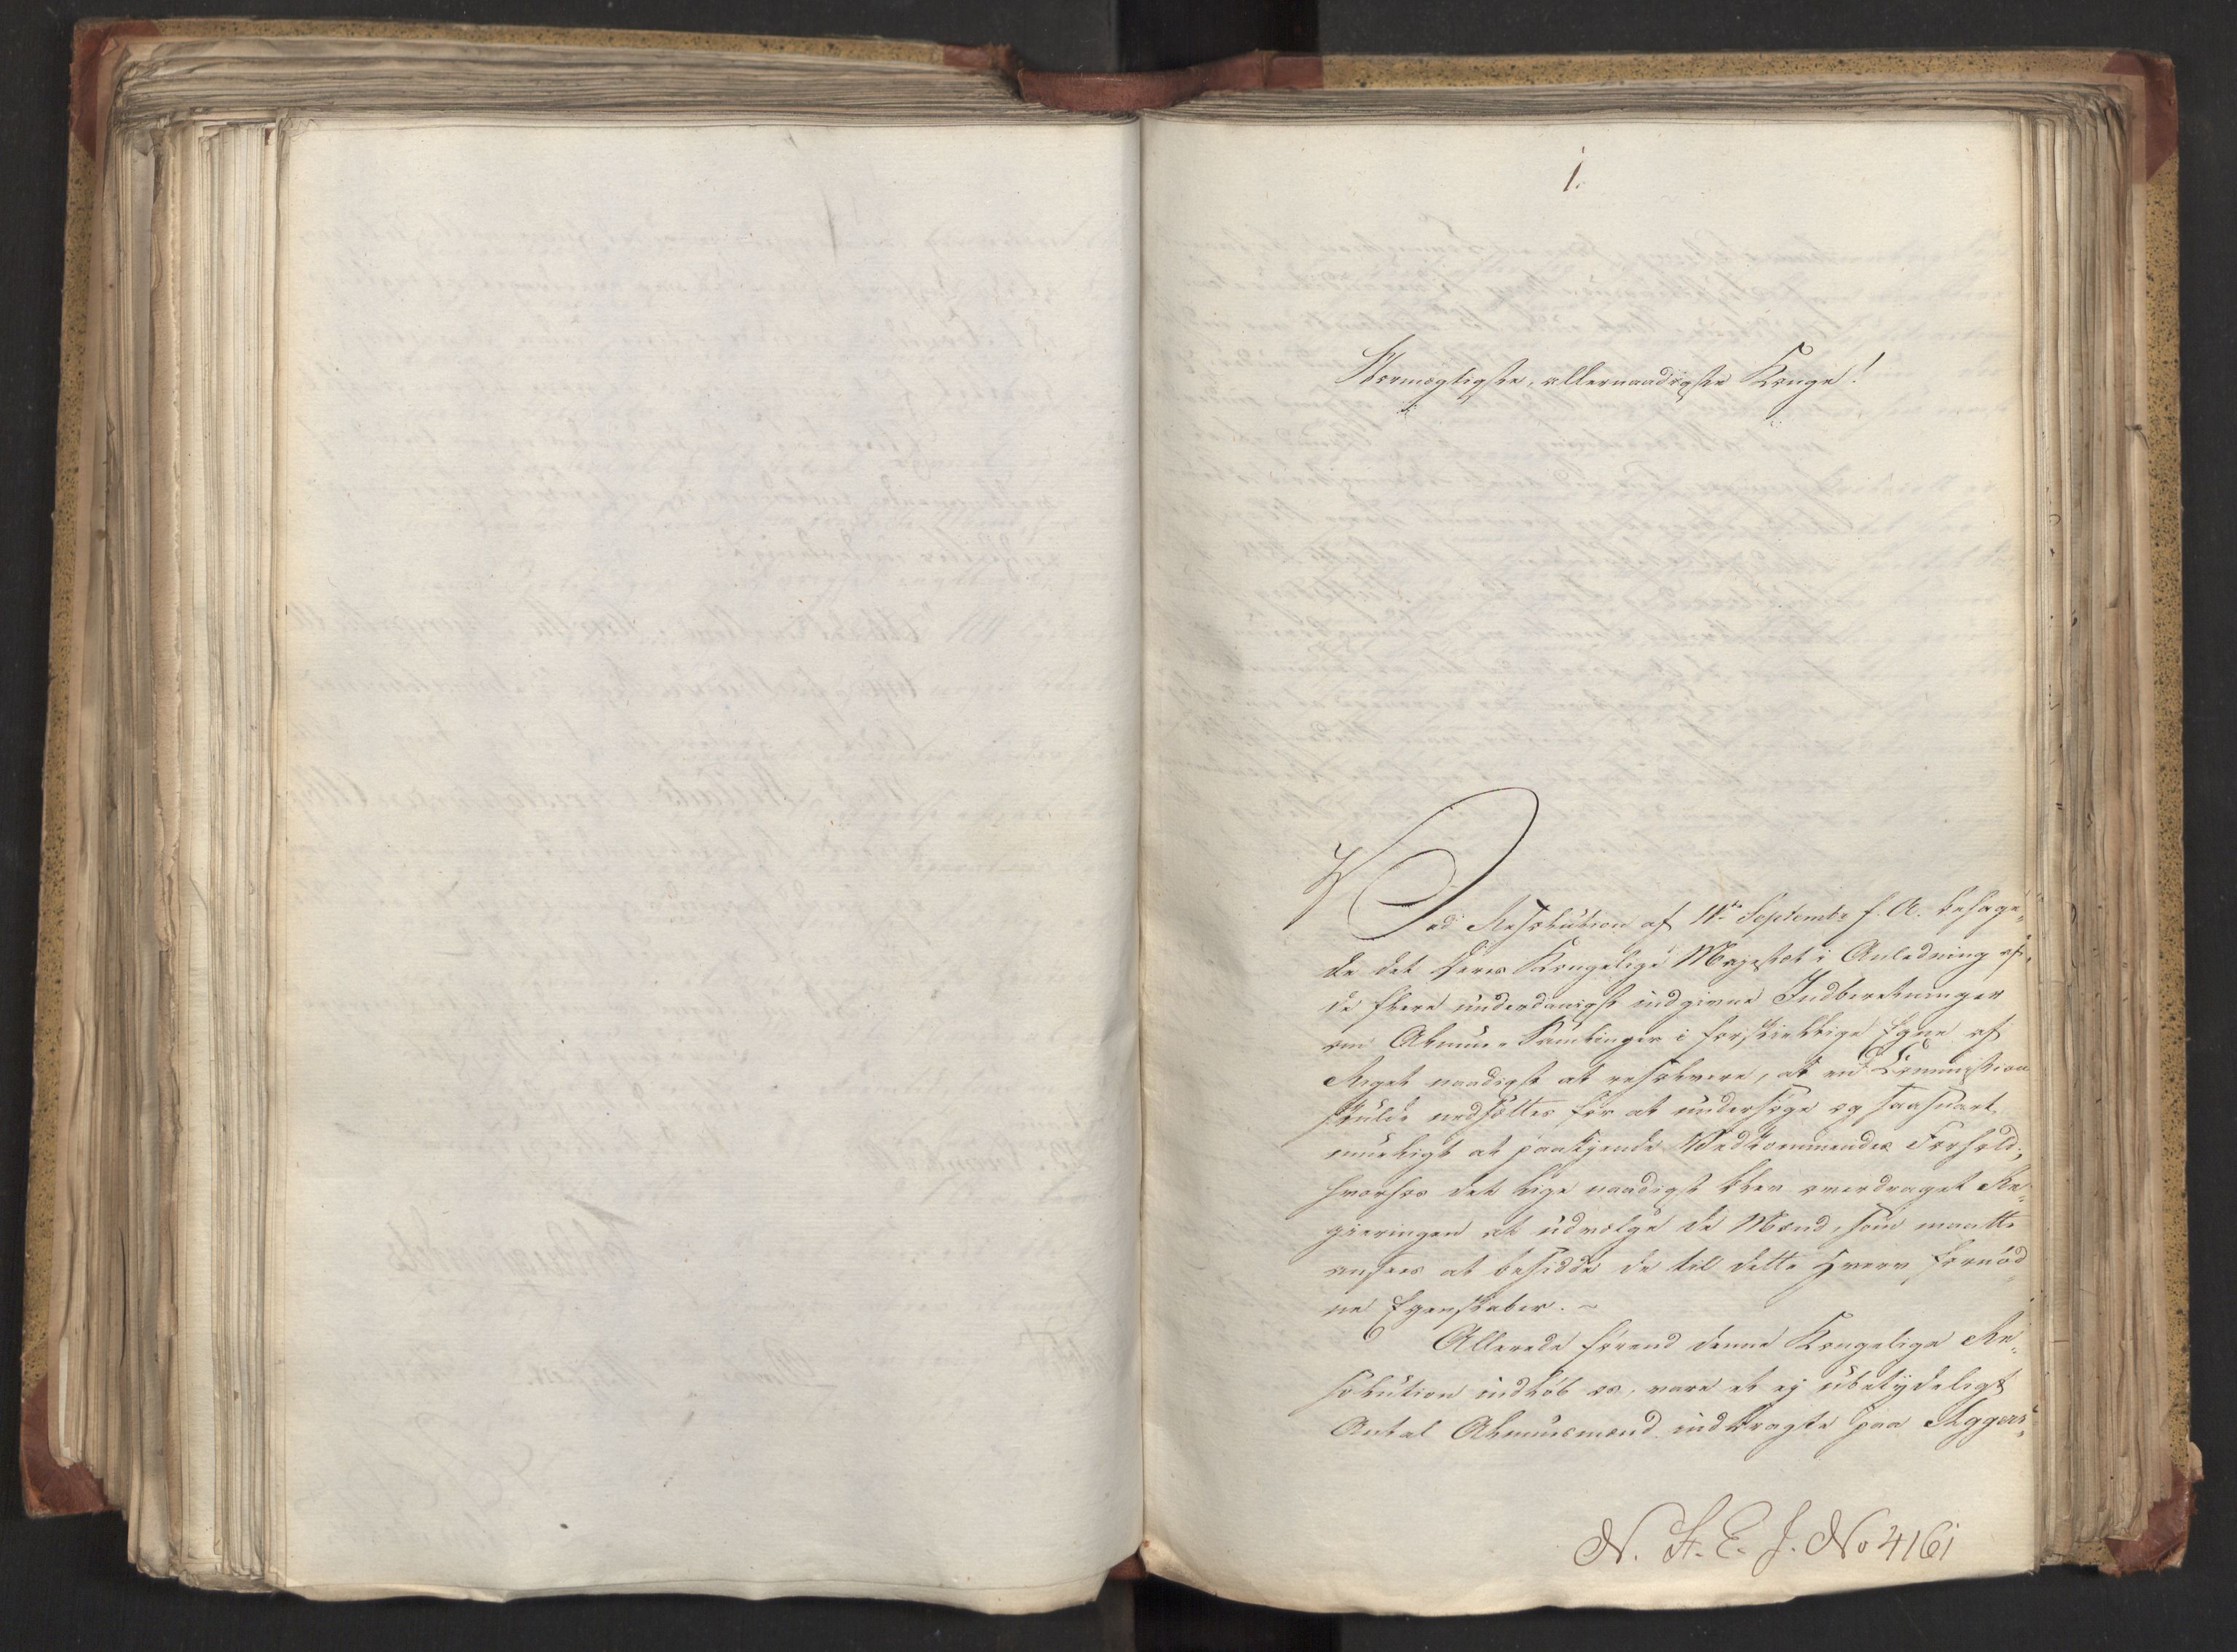 1.
Stormægtigste, allernaadigste Konge!
Ved Resolution af 11te Septembr f. A. behage-
de det Deres Kongelige Majestæt i Anledning af
de flere underdanigst indgivne Indberetninger
om Almue-Samlinger i forskiellige Egne af
Riget naadigst at resolvere, at en Commission
skulde nedsættes for at undersøge og saasnart
mueligt at paakjende Vedkommendes Forhold;
hvorhos det lige naadigst blev overdraget Re-
gieringen at udvælge de Mænd, som maatte
ansees at besidde de til dette Hverv fornød-
ne Egenskaber. ~
Allerede førend denne Kongelige Re-
solution indløb os, vare et ej ubetydeligt
Antal Almuesmænd indbragte paa Agger-
N. H. E. J. No 4161